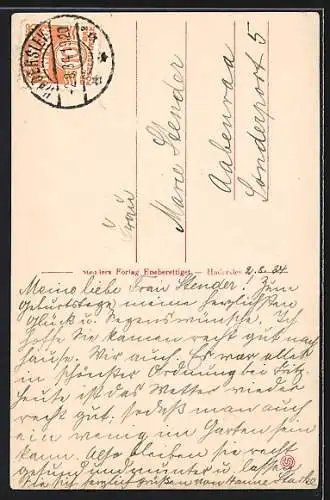 HADERSLEV
Frau
Marie Stender
Aabenraa
Sonderport 5
Forlag Eneberettiget. — Haderslev
2.8.34
Meine liebe Frau Stender! Zum
Geburtstage meine herzlichsten
Glück u. Segenswünsche. Ich
hoffe Sie kamen recht gut nach
Hause. Wir auch. Es war alles
in schönster Ordnung bei Fritz.
Heute ist das Wetter wieder
recht gut, sodass man auch
ein wenig im Garten sein
kann. Also bleiben Sie recht
gesund und munter u. lassen
Sie sich herzlichst grüssen von Hanne